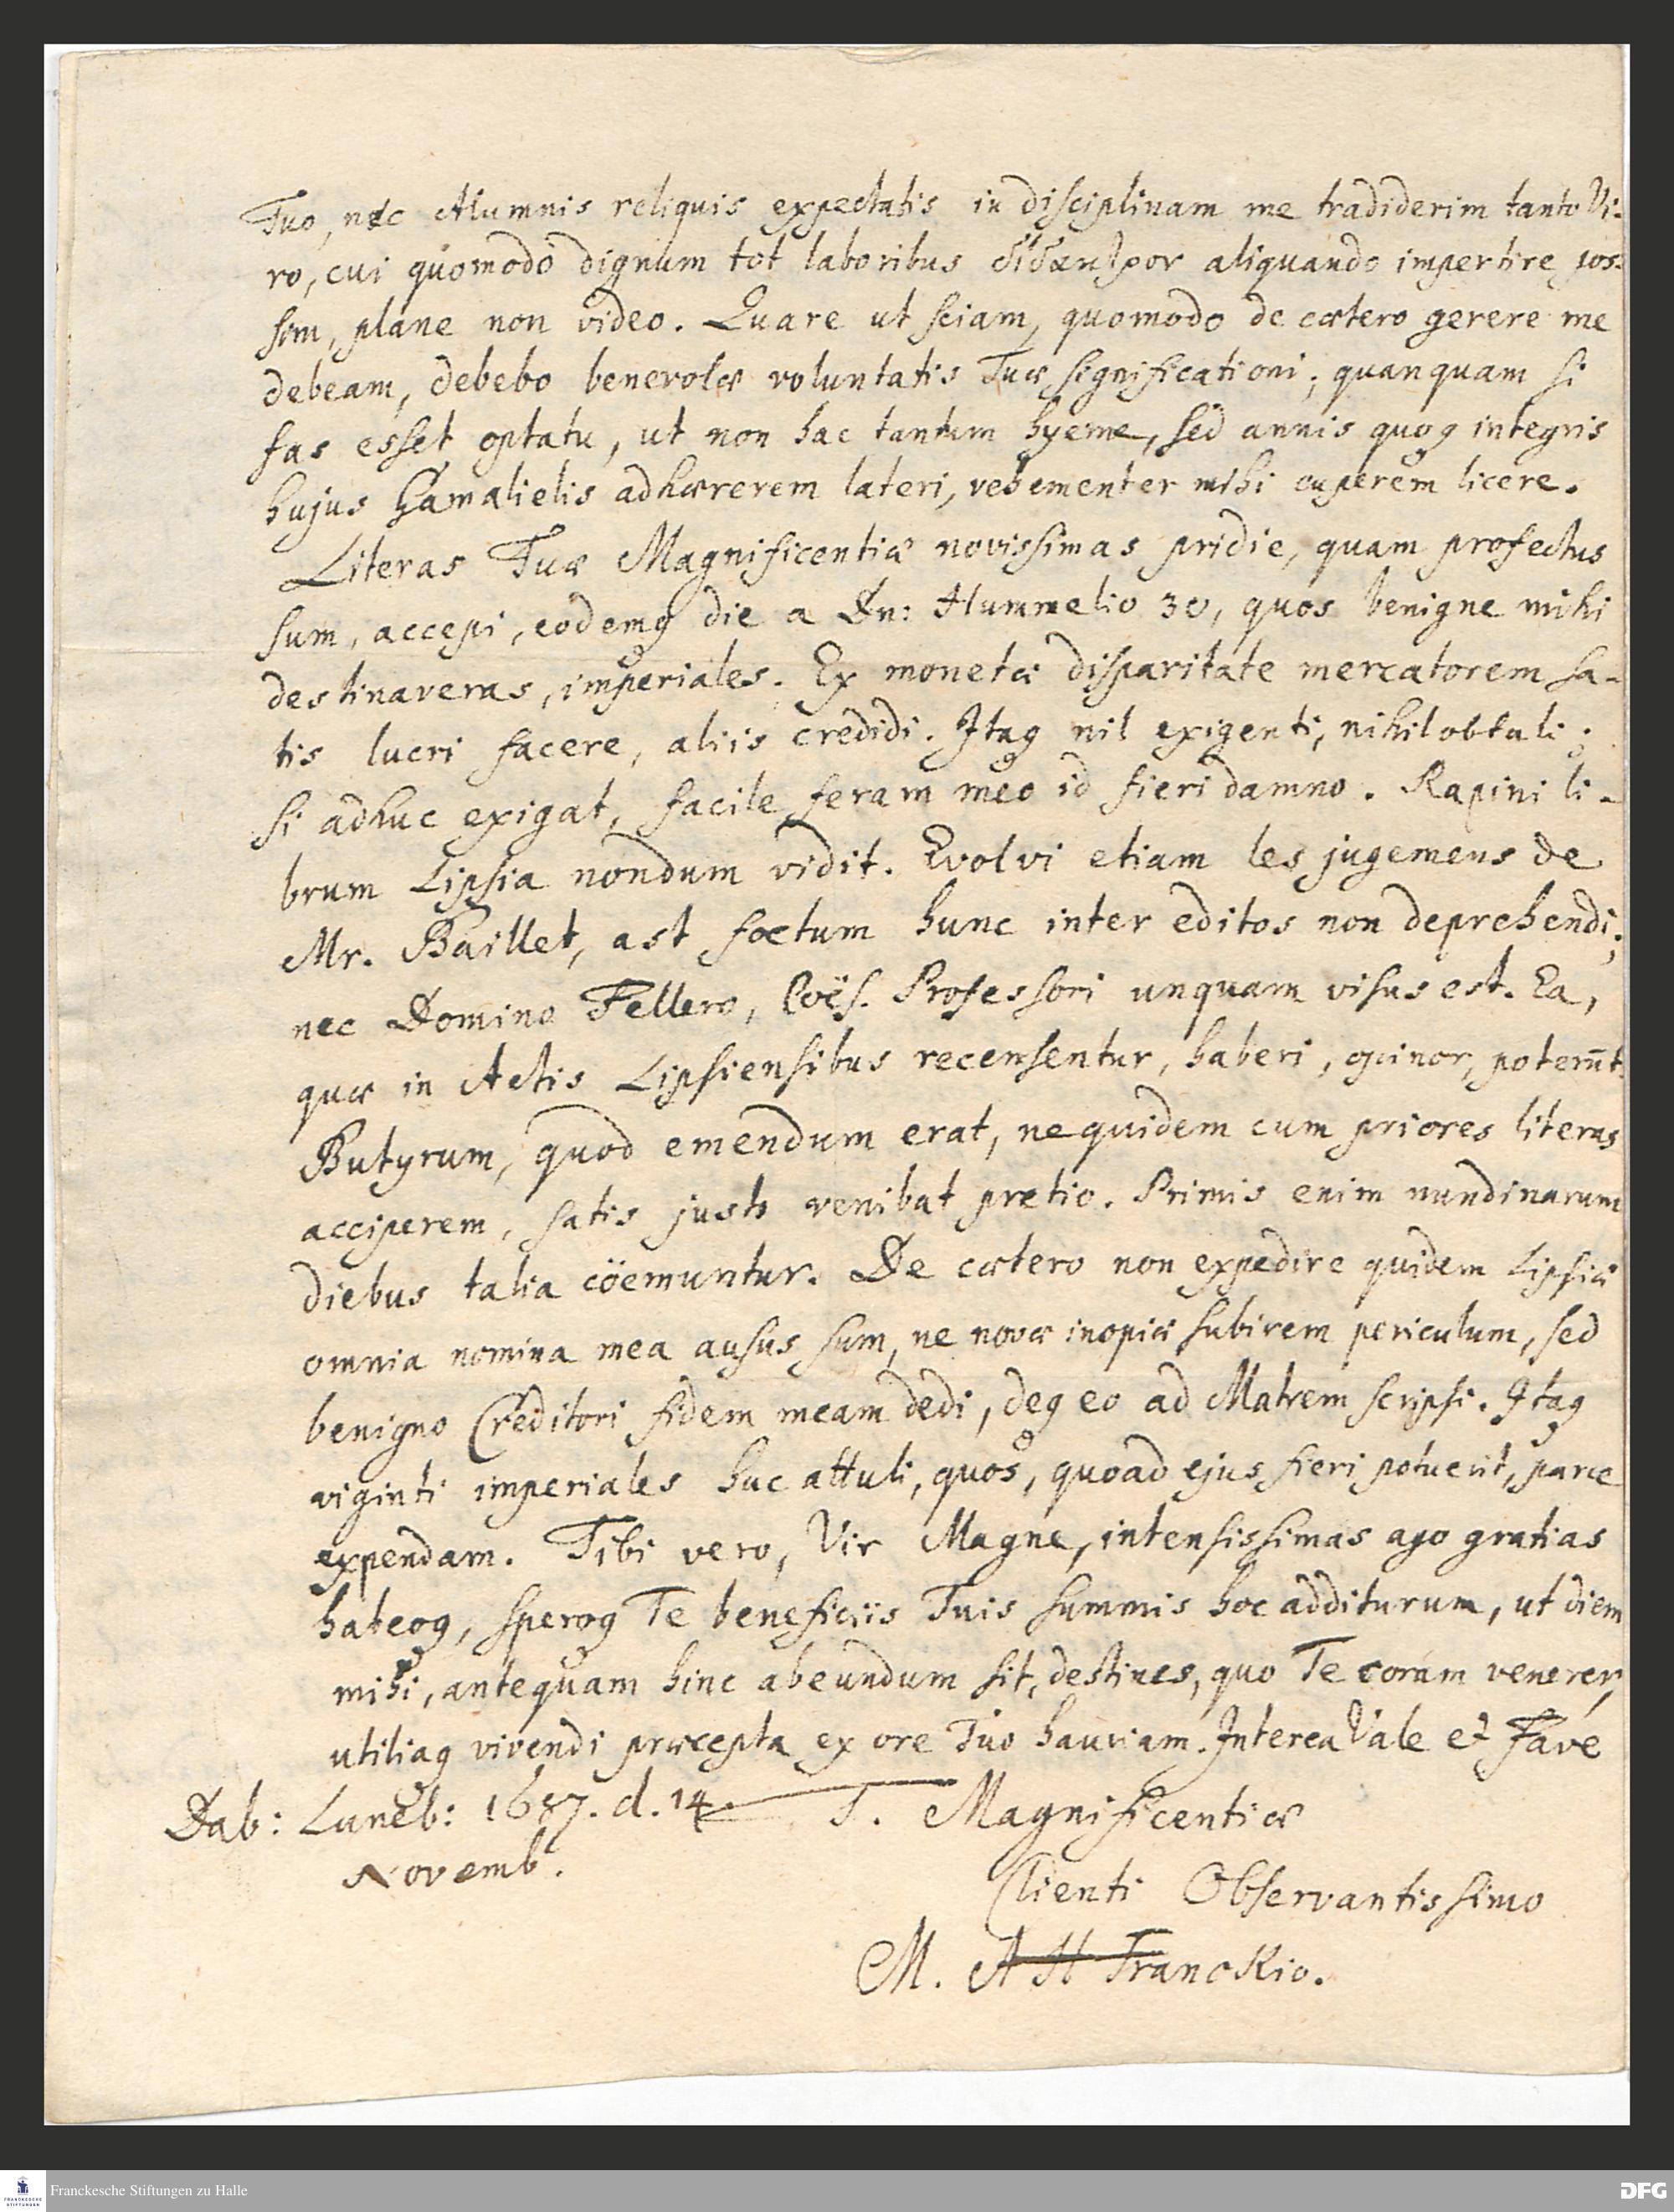 Tuo, nec Alumnis reliquis expectatis in disciplinam me tradiderim tanto Vi-
ro, cui quomodo dignum tot laboribus δίδακτρον aliquando impertire pos-
sim, plane non video. Quare ut sciam, quomodo de cætero gerere me
debeam, debebo benevolæ voluntatis Tuæ significationi; quanquam si
fas esset optatu, ut non hac tantum hyeme, sed annis quoq integris
hujus Gamalielis adhærerem lateri, vehementer mihi cuperem licere.
Literas Tuæ Magnificentiæ novissimas pridie, quam profectus
sum, accepi, eodemq die a Dn: Hummelio 30, quos benigne mihi
destinaveras, imperiales. Ex monetæ disparitate mercatorem sa-
tis lucri facere, aliis credidi. Itaq nil exigenti, nihil obtuli;
si adhuc exigat, facile feram meo id fieri damno. Rapini li-
brum Lipsia nondum vidit. Evolvi etiam les jugemens de
Mr. Baillet, ast foetum hunc inter editos non deprehendi;
nec Domino Fellero, Poës. Professori unquam visus est. Ea,
quæ in Actis Lipsiensibus recensentur, haberi, opinor, poterūt.
Butyrum, quod emendum erat, nequidem cum priores literas
acciperem, satis justo venibat pretio. Primis enim nundinarum
diebus talia cöemuntur. De cætero non expedire quidem Lipsiæ
omnia nomina mea ausus sum, ne novæ inopiæ subirem periculum, sed
benigno Creditori fidem meam dedi, deq eo ad Matrem scripsi. Itaq
viginti imperiales huc attuli, quos, quoad ejus fieri potuerit, parce
expendam. Tibi vero, Vir Magne, intensissimas ago gratias
habeoq, speroq Te beneficiis Tuis summis hoc additurum, ut diem
mihi, antequam hinc abeundum sit, destines, quo Te coram venerer,
utiliaq vivendi præcepta ex ore Tuo hauriam. Interea Vale et Fave
Dab: Luneb: 1687. d. 14. T. Magnificentiæ
Novemb.
Clienti Observantissimo
M. A H Franckio.
Franckesche Stiftungen zu Halle
FRANCKESCHE STIFTUNGEN
DFG